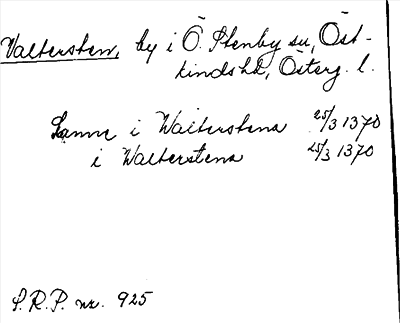 Valtersten, by i Ö. Stenby sn, Öst-
kinds hd, Österg. l.
Lamne i Walterstena 25/3 1370
i Walterstena 25/3 1370
S.R.P. nr. 925